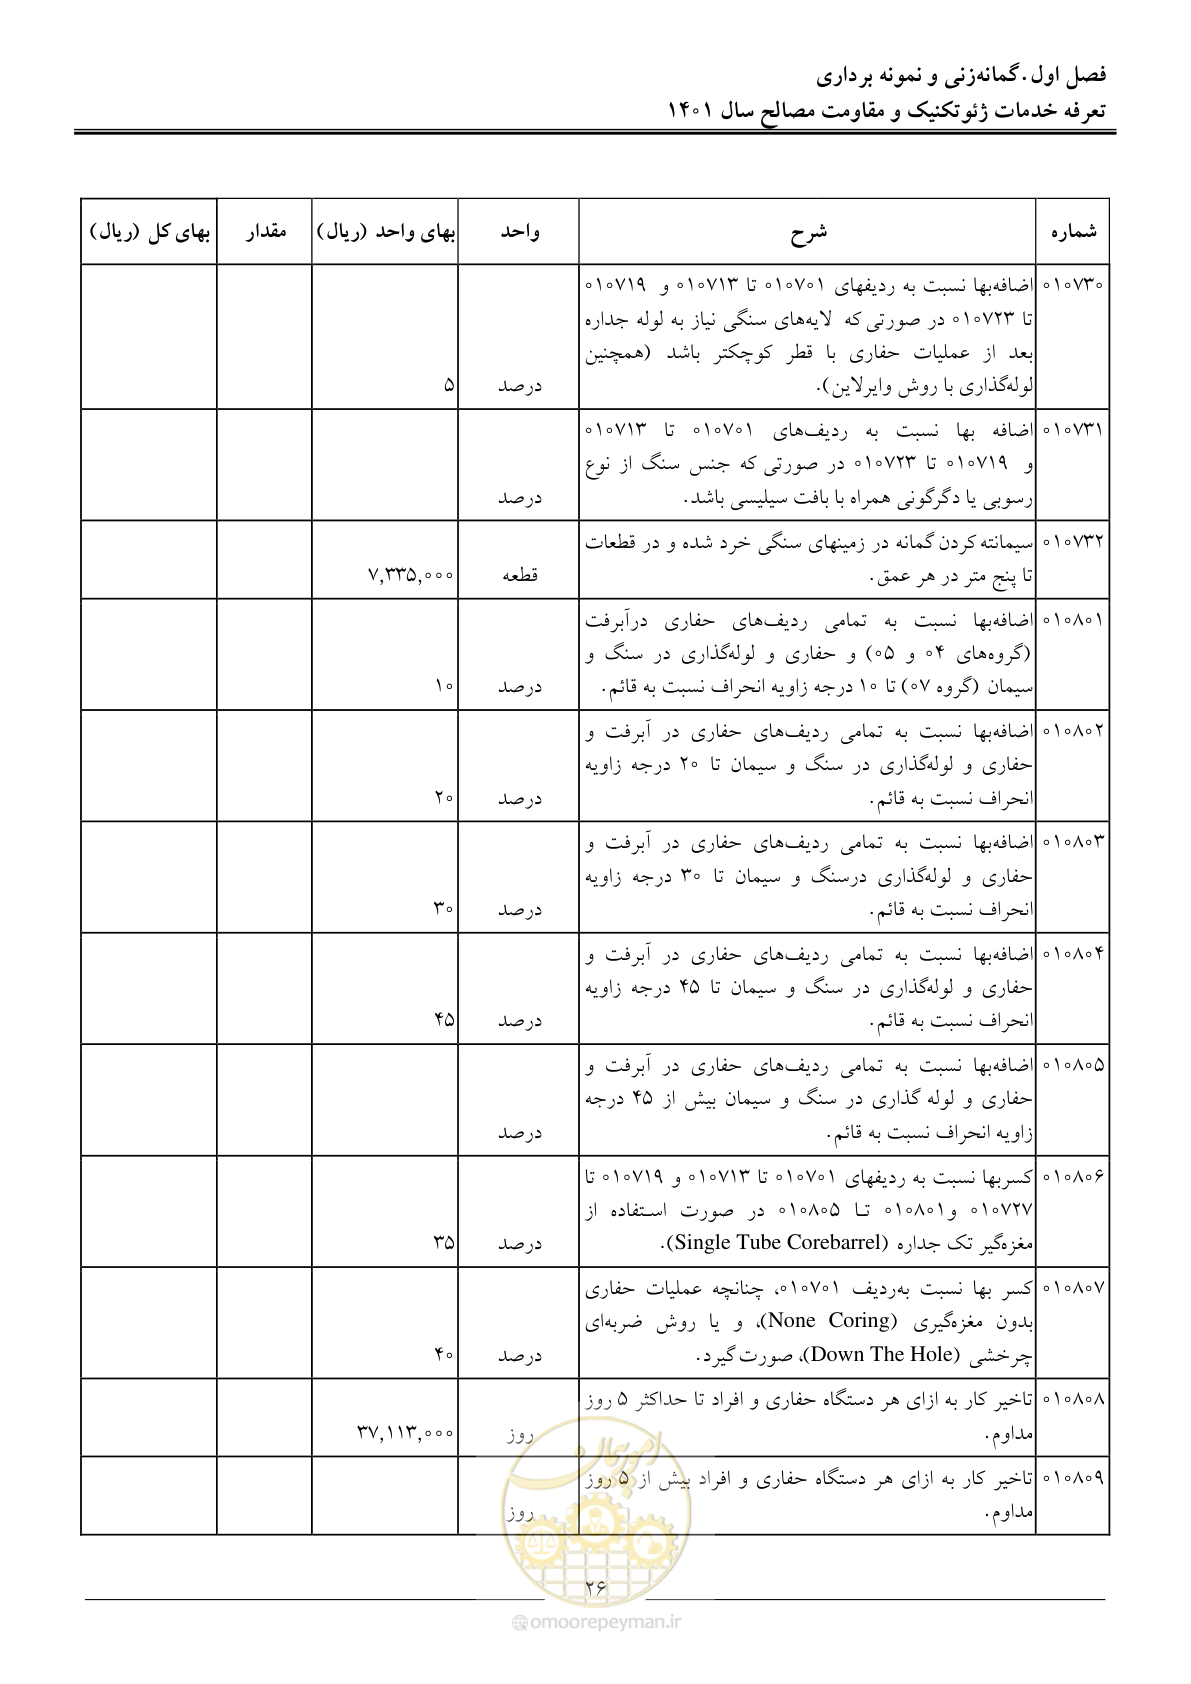 فصل اول.گمانه‌زنی و نمونه برداری
تعرفه خدمات ژئوتکنیک و مقاومت مصالح سال ۱۴۰۱
شماره شرح واحد بهای واحد (ریال) مقدار بهای کل (ریال)
۰۱۰۷۳۰ اضافه‌بها نسبت به ردیفهای ۰۱۰۷۰۱ تا ۰۱۰۷۱۳ و ۰۱۰۷۱۹
تا ۰۱۰۷۲۳ در صورتی که لایه‌های سنگی نیاز به لوله جداره
بعد از عملیات حفاری با قطر کوچکتر باشد (همچنین
لوله‌گذاری با روش وایرلاین). درصد ۵
۰۱۰۷۳۱ اضافه بها نسبت به ردیف‌های ۰۱۰۷۰۱ تا ۰۱۰۷۱۳
و ۰۱۰۷۱۹ تا ۰۱۰۷۲۳ در صورتی که جنس سنگ از نوع
رسوبی یا دگرگونی همراه با بافت سیلیسی باشد. درصد
۰۱۰۷۳۲ سیمانته کردن گمانه در زمینهای سنگی خرد شده و در قطعات
تا پنج متر در هر عمق. قطعه ۷,۳۳۵,۰۰۰
۰۱۰۸۰۱ اضافه‌بها نسبت به تمامی ردیف‌های حفاری درآبرفت
(گروه‌های ۰۴ و ۰۵) و حفاری و لوله‌گذاری در سنگ و
سیمان (گروه ۰۷) تا ۱۰ درجه زاویه انحراف نسبت به قائم. درصد ۱۰
۰۱۰۸۰۲ اضافه‌بها نسبت به تمامی ردیف‌های حفاری در آبرفت و
حفاری و لوله‌گذاری در سنگ و سیمان تا ۲۰ درجه زاویه
انحراف نسبت به قائم. درصد ۲۰
۰۱۰۸۰۳ اضافه‌بها نسبت به تمامی ردیف‌های حفاری در آبرفت و
حفاری و لوله‌گذاری درسنگ و سیمان تا ۳۰ درجه زاویه
انحراف نسبت به قائم. درصد ۳۰
۰۱۰۸۰۴ اضافه‌بها نسبت به تمامی ردیف‌های حفاری در آبرفت و
حفاری و لوله‌گذاری در سنگ و سیمان تا ۴۵ درجه زاویه
انحراف نسبت به قائم. درصد ۴۵
۰۱۰۸۰۵ اضافه‌بها نسبت به تمامی ردیف‌های حفاری در آبرفت و
حفاری و لوله گذاری در سنگ و سیمان بیش از ۴۵ درجه
زاویه انحراف نسبت به قائم. درصد
۰۱۰۸۰۶ کسربها نسبت به ردیفهای ۰۱۰۷۰۱ تا ۰۱۰۷۱۳ و ۰۱۰۷۱۹ تا
۰۱۰۷۲۷ و۰۱۰۸۰۱ تا ۰۱۰۸۰۵ در صورت استفاده از
مغزه‌گیر تک جداره (Single Tube Corebarrel). درصد ۳۵
۰۱۰۸۰۷ کسر بها نسبت به‌ردیف ۰۱۰۷۰۱، چنانچه عملیات حفاری
بدون مغزه‌گیری (None Coring)، و یا روش ضربه‌ای
چرخشی (Down The Hole)، صورت گیرد. درصد ۴۰
۰۱۰۸۰۸ تاخیر کار به ازای هر دستگاه حفاری و افراد تا حداکثر ۵ روز
مداوم. روز ۳۷,۱۱۳,۰۰۰
۰۱۰۸۰۹ تاخیر کار به ازای هر دستگاه حفاری و افراد بیش از ۵ روز
مداوم. روز
امور پیمان
۲۶
omoorepeyman.ir